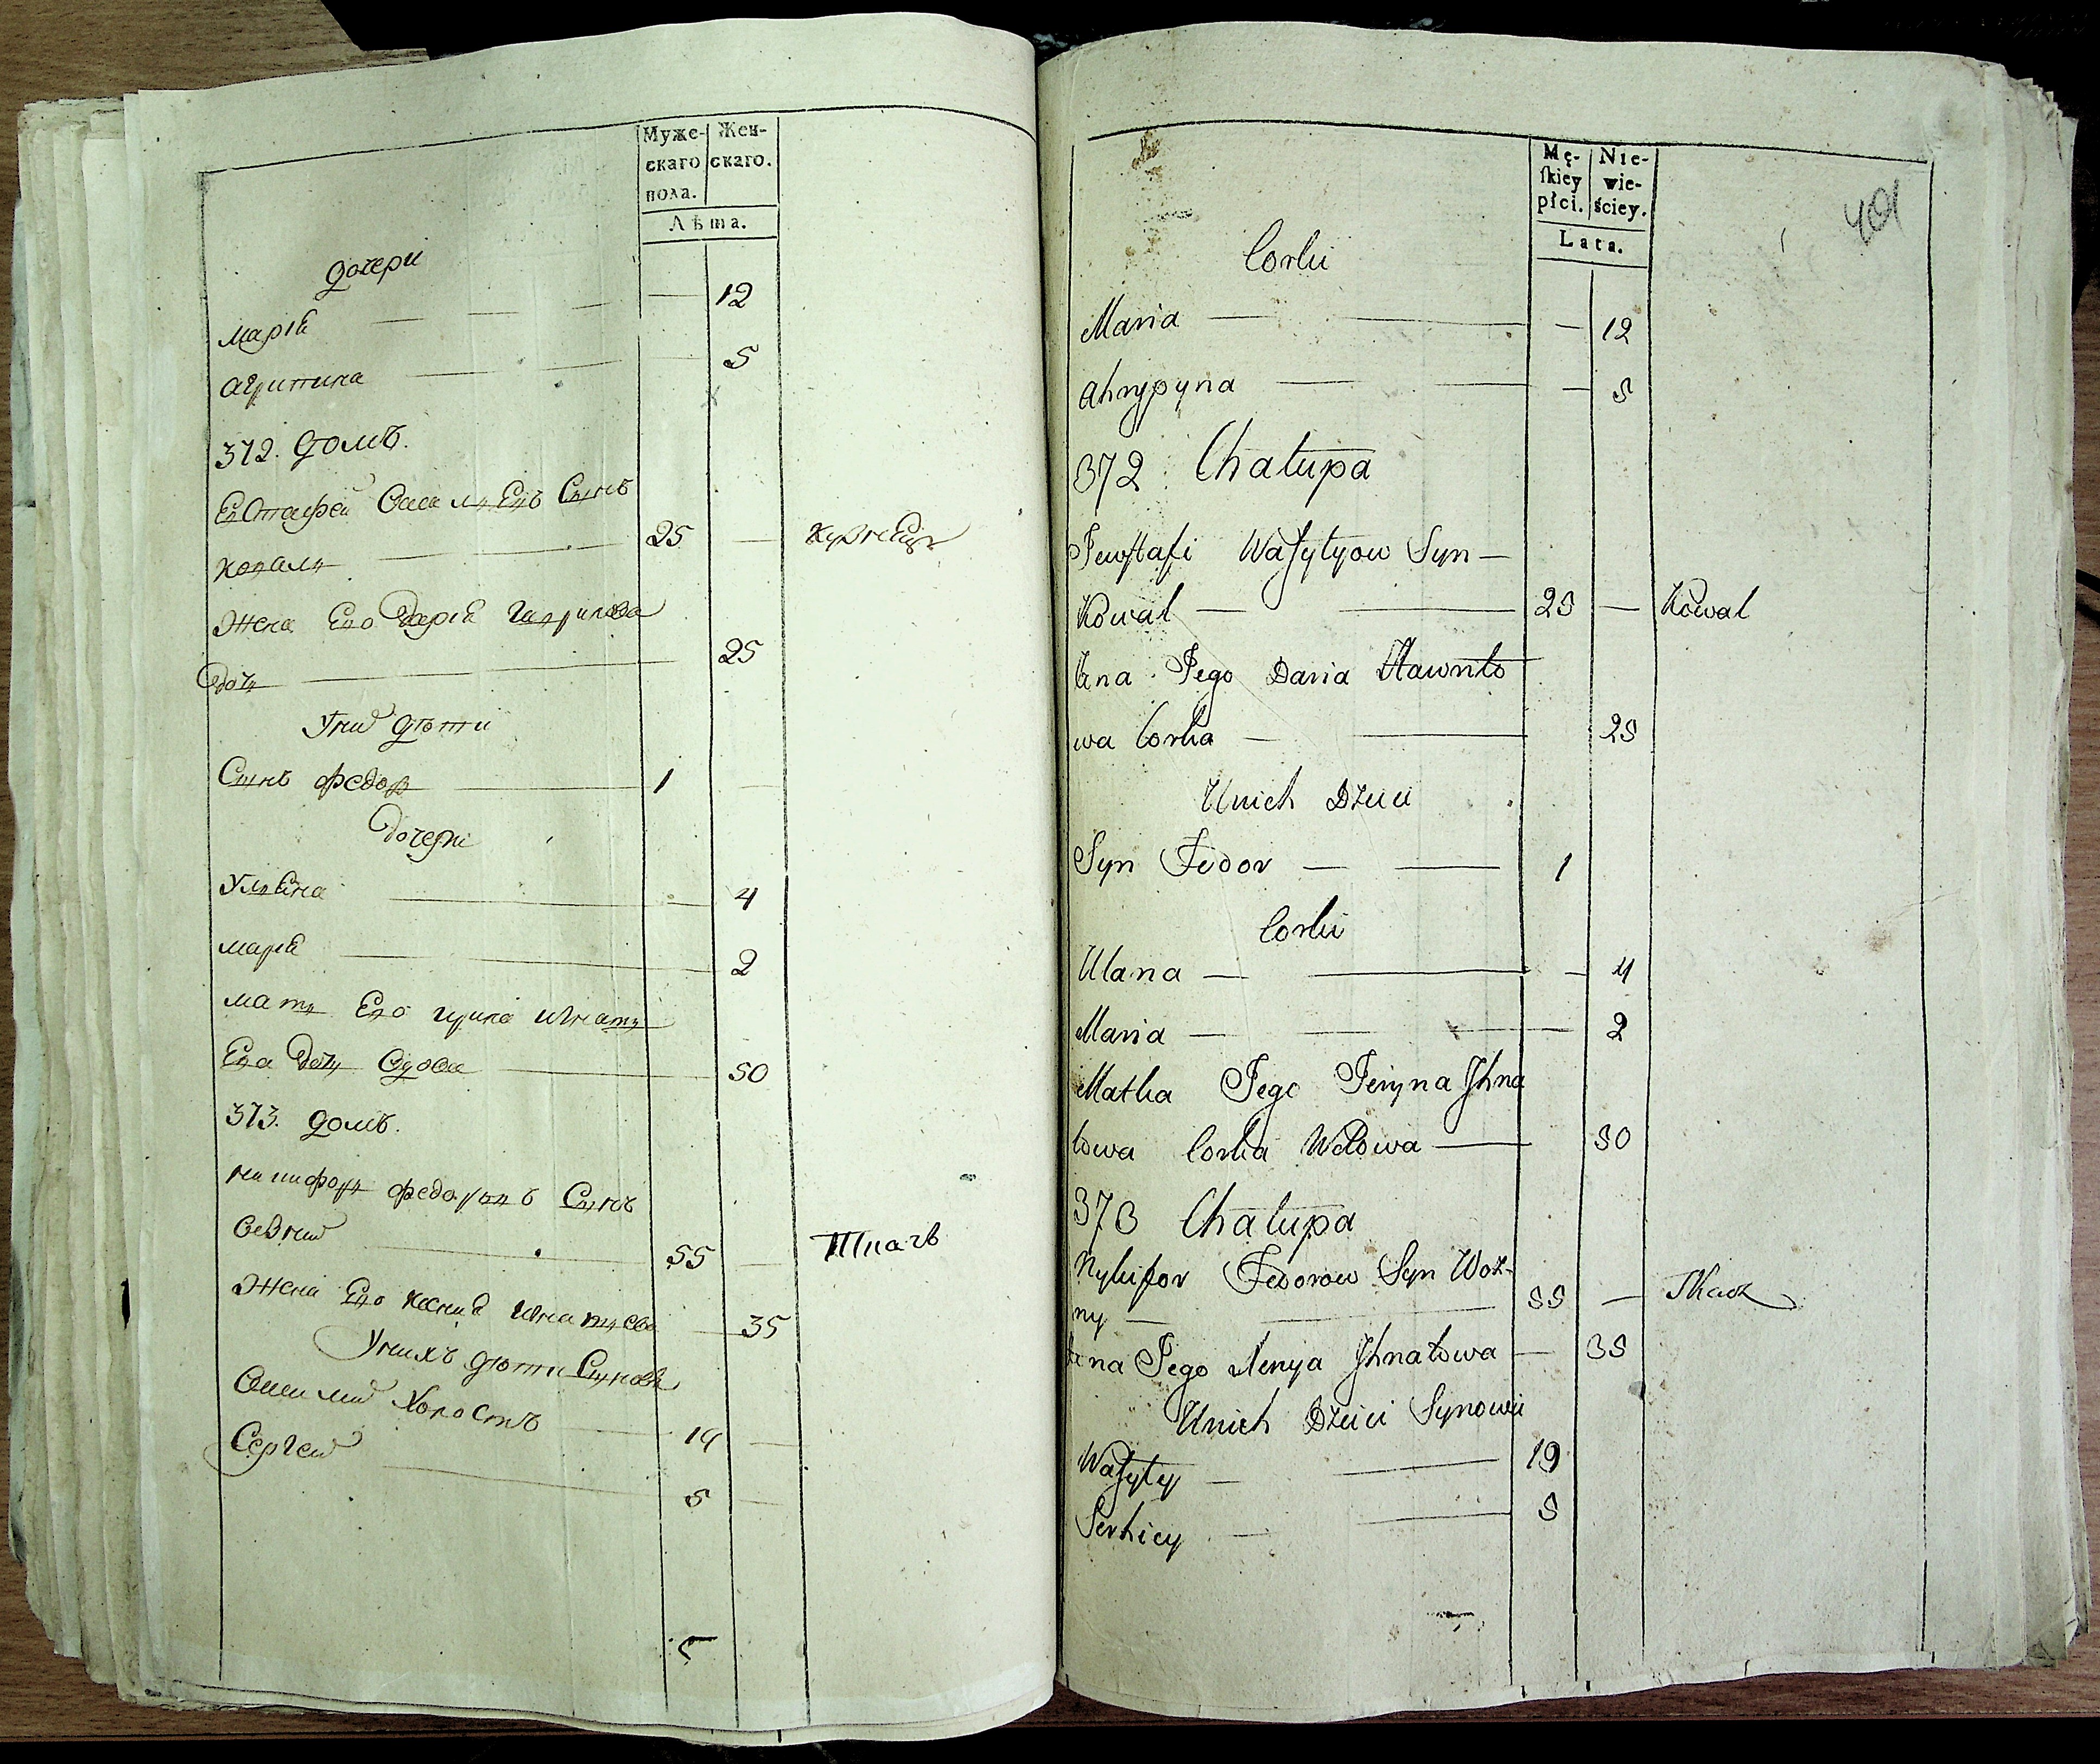 Муже- Жен-
скаго скаго.
пола.
Лѣта.
дочери
Марiя — — — — 12
Агрипина — — — 5
372. домъ.
Евстафей Васильевъ Сынъ
Коваль — — 25 — Кузнецъ
Жена Его Дарiя Гаврилова
дочь — 25
У них дѣти
Сынъ Федоръ — 1 —
Дочери
Ульяна — 4
Марiя — 2
Мать Его Ирина Игнать
Ева Дочь Вдова — 50
373. домъ.
Никифоръ Федоровъ Сынъ
Возний — 55 — Ткачъ
Жена Его Ксенiя Игнатьева — 35
У нихъ дѣти Сыновя
Василий Холостъ — 19 —
Сергей — 5 —
Mę- Nie-
skiey wie-
płci. ściey.
Lata.
401
Corki
Maria — — — 12
Ahrypyna — — — 5
372 Chałupa
Jewstafi Wasylyow Syn —
Kowal — — 25 — Kowal
Żna Jego Daria Hawryło
wa Corka — — 25
U nich Dzieci
Syn Fedor — — 1
Corki
Ulana — — — 4
Maria — — — 2
Matka Jego Jeryna Jhna
towa Corka Wdowa — 50
373 Chałupa
Nykifor Fedorow Syn Woz-
ny — — 55 — Tkacz
Żna Jego Xenya Jhnatowa — 35
U nich Dzieci Synowie
Wasyly — — 19
Serhiey — — 5